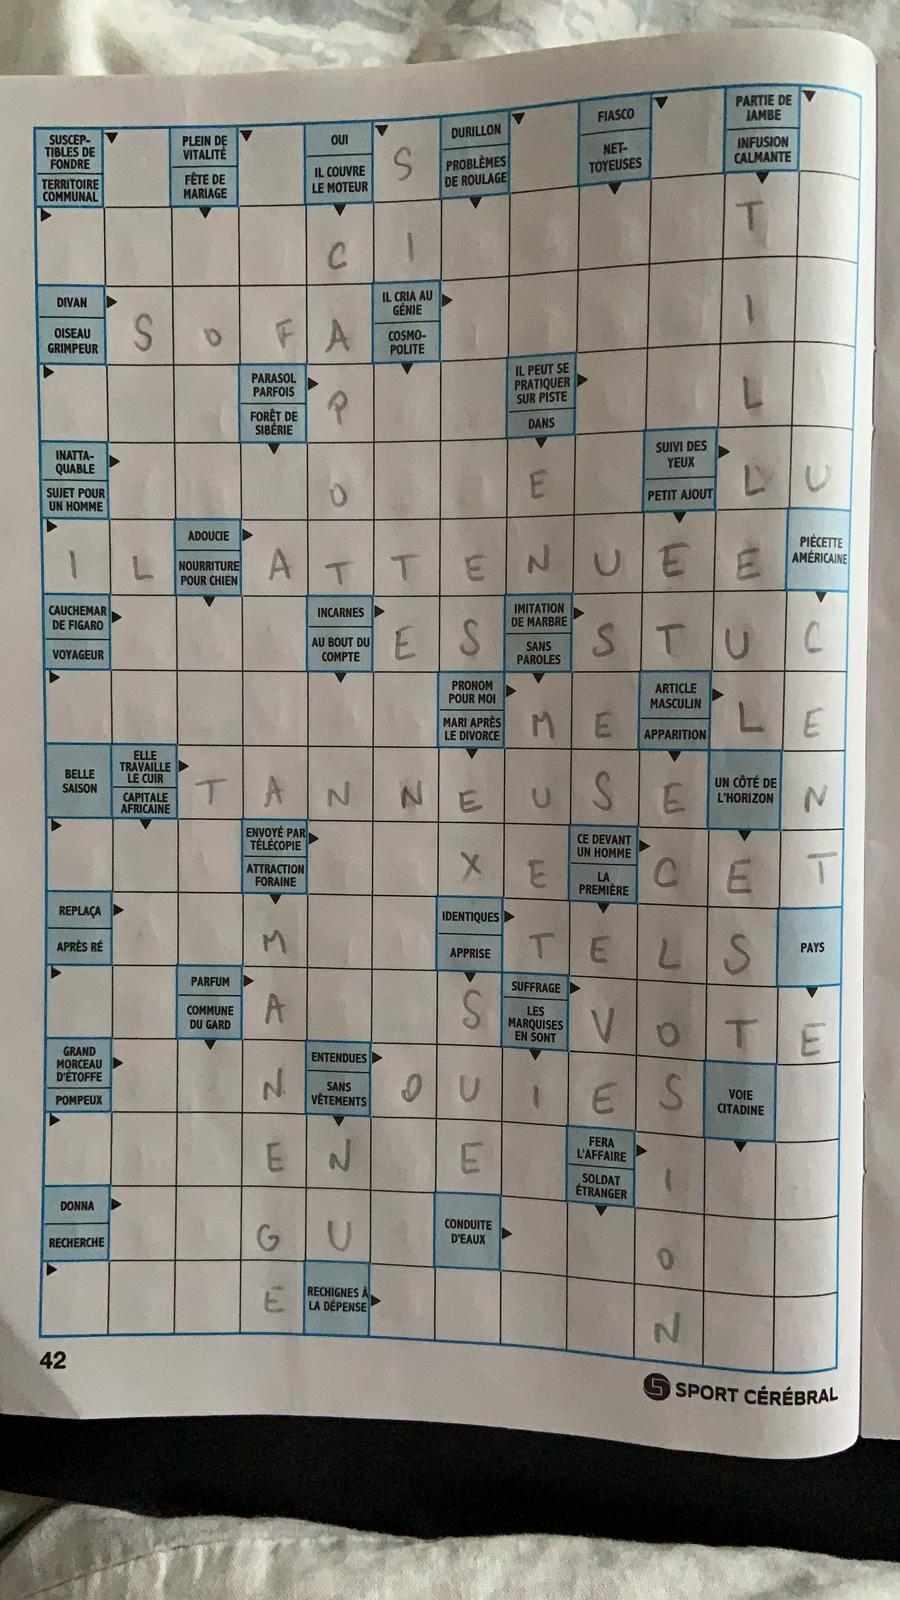 SUSCEP-
TIBLES DE
FONDRE
TERRITOIRE
COMMUNAL
PLEIN DE
VITALITÉ
FÊTE DE
MARIAGE
OUI
IL COUVRE
LE MOTEUR
S
DURILLON
PROBLÈMES
DE ROULAGE
FIASCO
NET-
TOYEUSES
PARTIE DE
JAMBE
INFUSION
CALMANTE
C I T
DIVAN
OISEAU
GRIMPEUR
S O F A
IL CRIA AU
GÉNIE
COSMO-
POLITE
I
PARASOL
PARFOIS
FORÊT DE
SIBÉRIE
P
IL PEUT SE
PRATIQUER
SUR PISTE
DANS
L
INATTA-
QUABLE
SUJET POUR
UN HOMME
O E
SUIVI DES
YEUX
PETIT AJOUT
L U
I L
ADOUCIE
NOURRITURE
POUR CHIEN
A T T E N U E E
PIÉCETTE
AMÉRICAINE
CAUCHEMAR
DE FIGARO
VOYAGEUR
INCARNES
AU BOUT DU
COMPTE
E S
IMITATION
DE MARBRE
SANS
PAROLES
S T U C
PRONOM
POUR MOI
MARI APRÈS
LE DIVORCE
M E
ARTICLE
MASCULIN
APPARITION
L E
BELLE
SAISON
ELLE
TRAVAILLE
LE CUIR
CAPITALE
AFRICAINE
T A N N E U S E
UN CÔTÉ DE
L'HORIZON
N
ENVOYÉ PAR
TÉLÉCOPIE
ATTRACTION
FORAINE
X E
CE DEVANT
UN HOMME
LA
PREMIÈRE
C E T
REPLAÇA
APRÈS RÉ
M
IDENTIQUES
APPRISE
T E L S
PAYS
PARFUM
COMMUNE
DU GARD
A S
SUFFRAGE
LES
MARQUISES
EN SONT
V O T E
GRAND
MORCEAU
D'ÉTOFFE
POMPEUX
N
ENTENDUES
SANS
VÊTEMENTS
O U I E S
VOIE
CITADINE
E N E
FERA
L'AFFAIRE
SOLDAT
ÉTRANGER
I
DONNA
RECHERCHE
G U
CONDUITE
D'EAUX
O
E
RECHIGNES À
LA DÉPENSE
N
42
SPORT CÉRÉBRAL